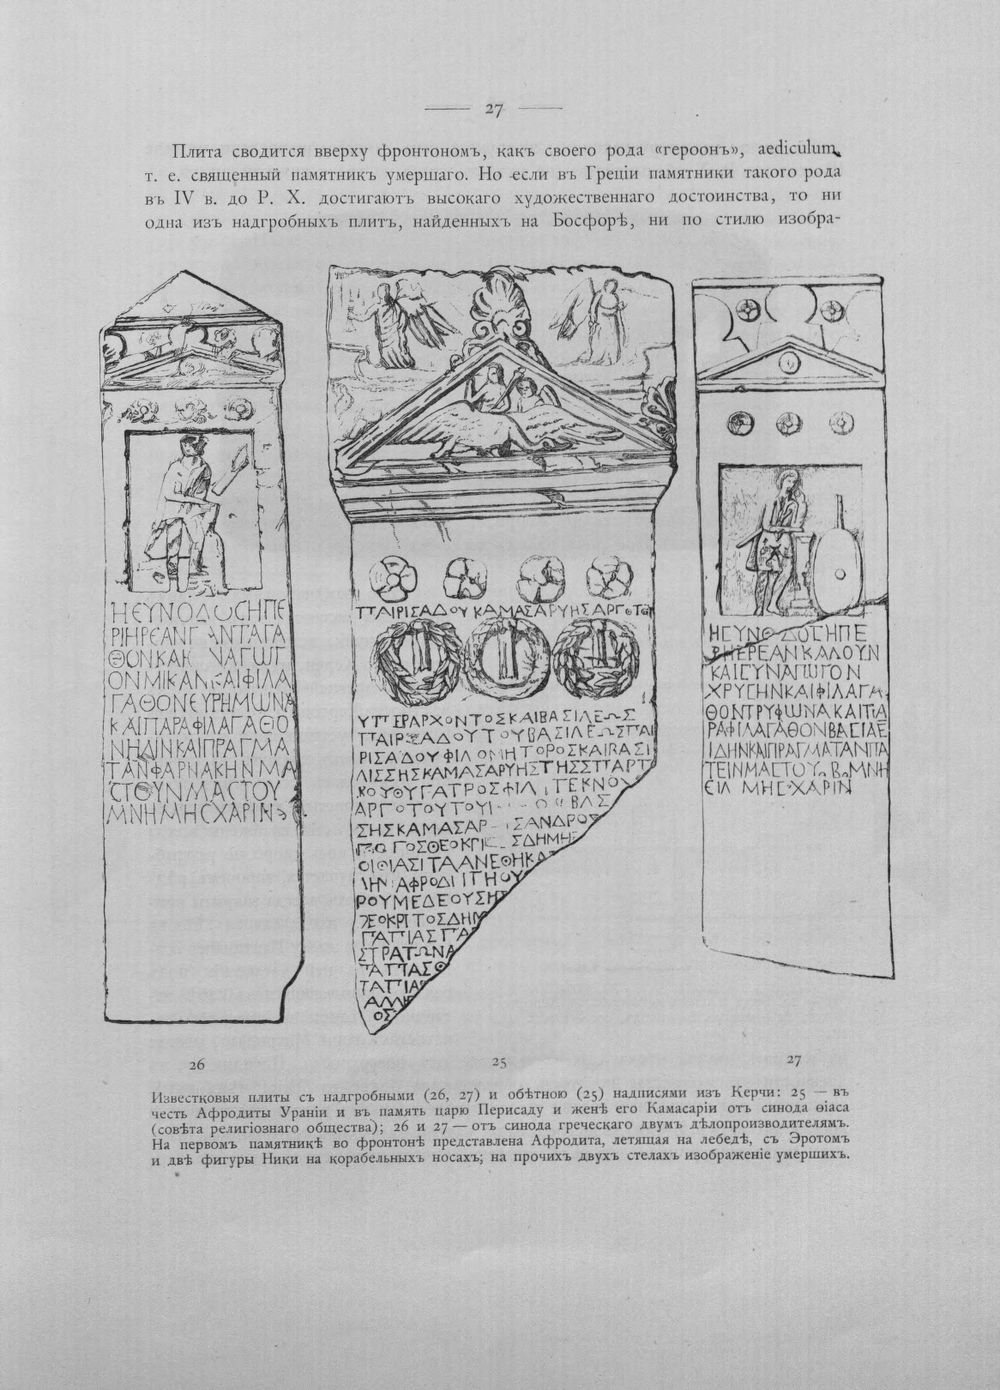 27
Плита сводится вверху фронтономъ, какъ своего рода «героонъ», aediculum,
т. е. священный памятникъ умершаго. Но если въ Греціи памятники такого рода
въ IV в. до Р. Х. достигаютъ высокаго художественнаго достоинства, то ни
одна изъ надгробныхъ плитъ, найденныхъ на Босфорѣ, ни по стилю изобра-
ΗΣΥΝΟΔΟΣΗΠΕ
ΡΙΗΡΕΑΝ ΑΝΤΑΓΑ
ΘΟΝΚΑΙ ΝΑΓΩΓ
ΟΝΜΙΚΑΝ ΚΑΙΦΙΛΑ
ΓΑΘΟΝΕΥΡΗΜΩΝΑ
ΚΑΙΠΑΡΑΦΙΛΑΓΑΘΟ
ΝΗΔΙΝΚΑΙΠΡΑΓΜΑ
ΤΑΝΦΑΡΝΑΚΗΝΜΑ
ΣΤΟΥΝΜΑΣΤΟΥ
ΜΝΗΜΗΣΧΑΡΙΝ
ΠΑΙΡΙΣΑΔΟΥΚΑΜΑΣΑΡΥΗΣΑΡΓΟΤΟΥ
ΥΠΕΡΑΡΧΟΝΤΟΣΚΑΙΒΑΣΙΛΕΩΣ
ΠΑΙΡΙΣΑΔΟΥΤΟΥΒΑΣΙΛΕΩΣΠΑΙ
ΡΙΣΑΔΟΥΦΙΛΟΜΗΤΟΡΟΣΚΑΙΒΑΣΙ
ΛΙΣΣΗΣΚΑΜΑΣΑΡΥΗΣΤΗΣΣΠΑΡΤ
ΚΟΥΘΥΓΑΤΡΟΣΦΙΛ ΤΕΚΝΟΥ
ΑΡΓΟΤΟΥΤΟΥΙ
ΣΗΣΚΑΜΑΣΑΡ ΙΣΑΝΔΡΟΣ
ΓΟΣΘΕΟΚΡΙ ΣΔΗΜΗ
ΟΙΘΙΑΣΙΤΑΑΝΕΘΗΚΑ
ΑΦΡΟΔΙΤΗΟΥ
ΡΟΥΜΕΔΕΟΥΣΗ
ΘΕΟΚΡΙΤΟΣΔΗΜ
ΠΑΠΙΑΣΠΑ
ΣΤΡΑΤΩΝΑ
ΠΑΠΠΑΣΘ
ΠΑΠΙΑΣ
ΟΣ
ΗΣΥΝΟΔΟΣΗΠΕ
ΡΙΙΕΡΕΑΝΚΑΛΟΥΝ
ΚΑΙΣΥΝΑΓΩΓΟΝ
ΧΡΥΣΗΝΚΑΙΦΙΛΑΓΑ
ΘΟΝΤΡΥΦΩΝΑΚΑΙΠΑ
ΡΑΦΙΛΑΓΑΘΟΝΒΑΣΙΛΕ
ΙΔΗΝΚΑΙΠΡΑΓΜΑΤΑΝΠΑ
ΤΕΙΝΜΑΣΤΟΥ ΜΝΗ
ΜΗΣΧΑΡΙΝ
26
25
27
Известковыя плиты съ надгробными (26, 27) и обѣтною (25) надписями изъ Керчи: 25 — въ
честь Афродиты Ураніи и въ память царю Перисаду и женѣ его Камасаріи отъ синода ѳіаса
(совѣта религіознаго общества); 26 и 27 — отъ синода греческаго двумъ дѣлопроизводителямъ.
На первомъ памятникѣ во фронтонѣ представлена Афродита, летящая на лебедѣ, съ Эротомъ
и двѣ фигуры Ники на корабельныхъ носахъ; на прочихъ двухъ стелахъ изображеніе умершихъ.